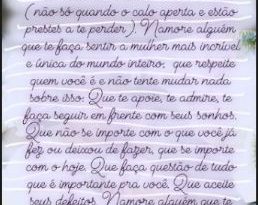 (não só quando o calo aperta e estão
prestes a te perder). Namore alguém
que te faça sentir a mulher mais incrível
e única do mundo inteiro, que respeite
quem você é e não tente mudar nada
sobre isso. Que te apoie, te admire, te
faça seguir em frente com seus sonhos.
Que não se importe com o que você já
fez ou deixou de fazer, que se importe
com o hoje. Que faça questão de tudo
que é importante pra você. Que aceite
seus defeitos. Namore alguém que te